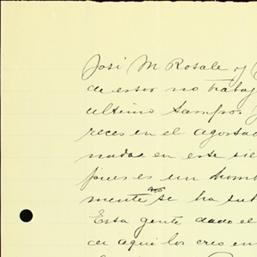 José M Rosale y
de estos no trabaj
ultimo
reces en el agosta
nadas en este sie
pues es un homb
mente no se ha
Esta gente dado el
de aqui los creo en